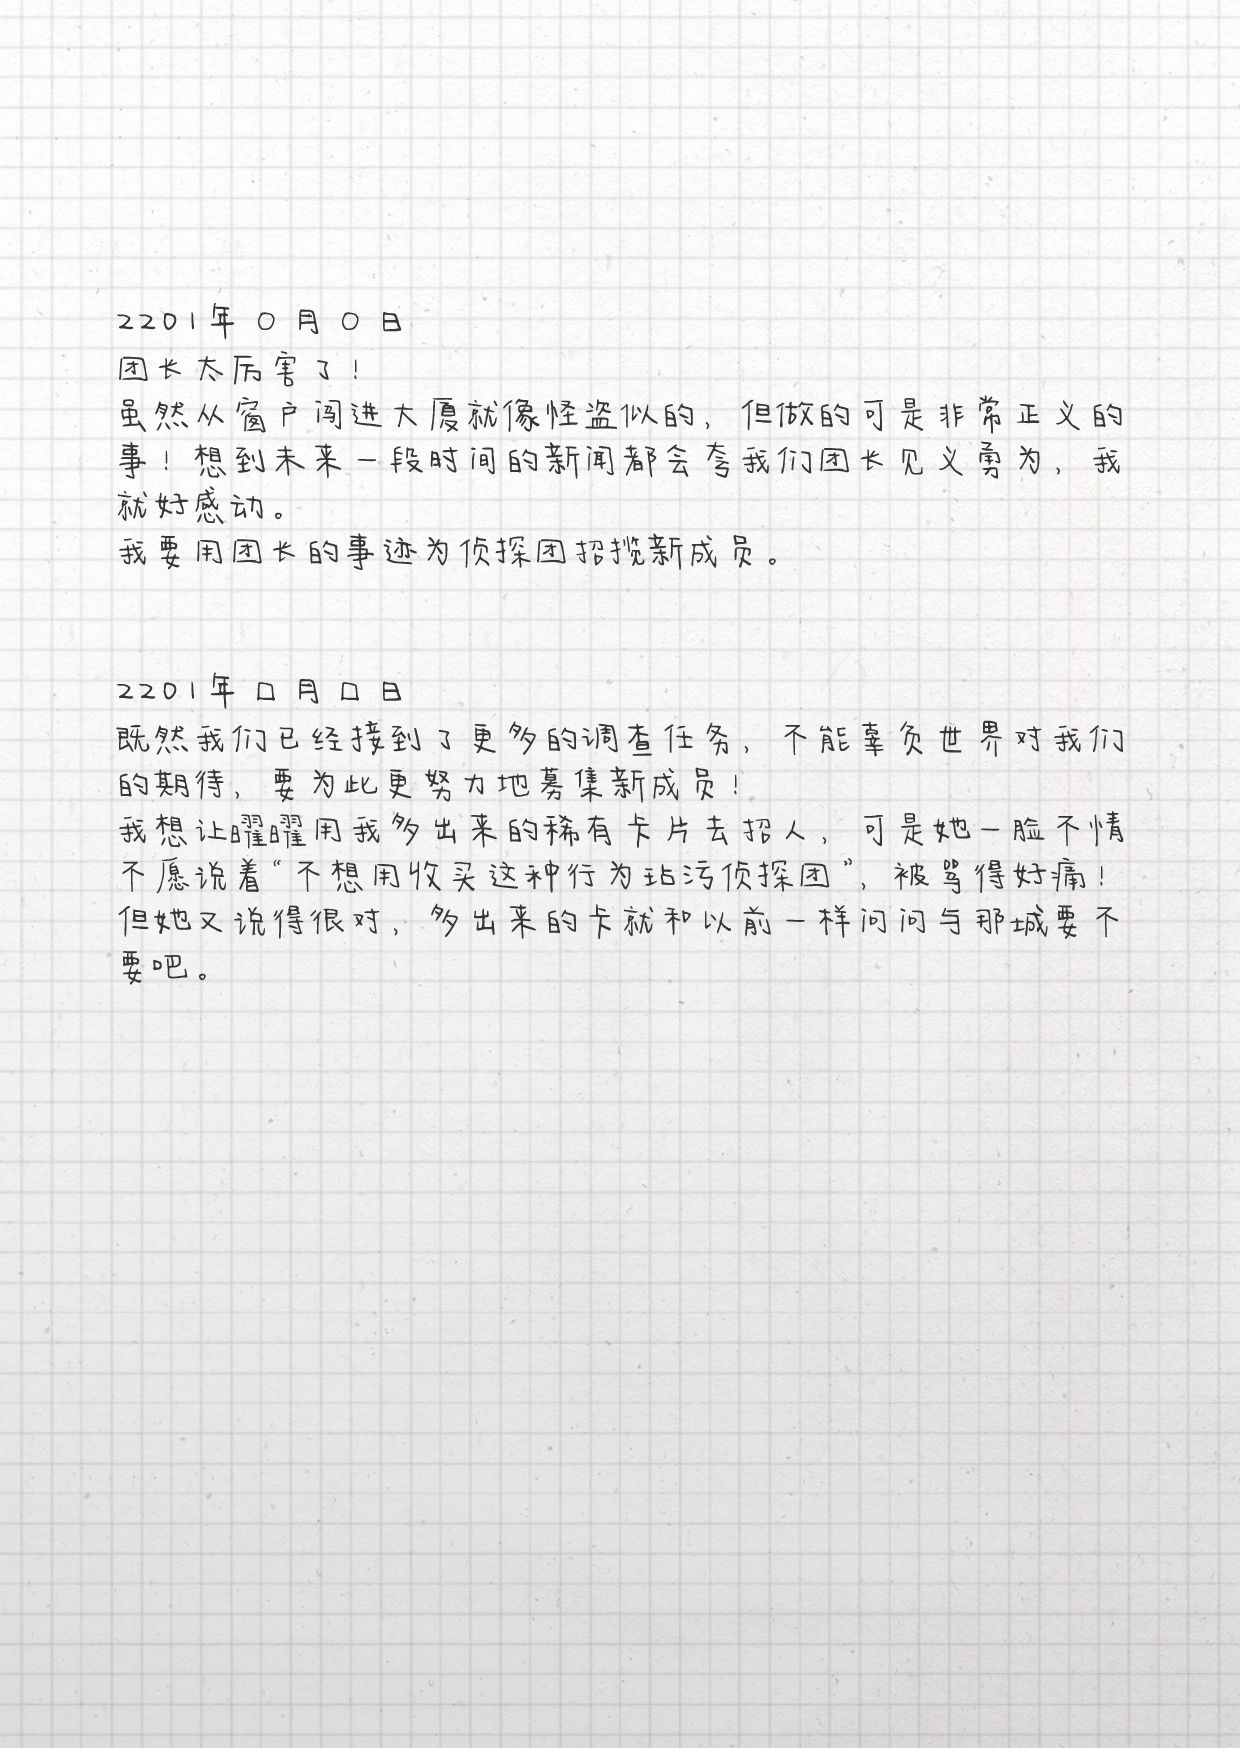 2201年〇月〇日
团长太厉害了！
虽然从窗户闯进大厦就像怪盗似的，但做的可是非常正义的
事！想到未来一段时间的新闻都会夸我们团长见义勇为，我
就好感动。
我要用团长的事迹为侦探团招揽新成员。
2201年口月口日
既然我们已经接到了更多的调查任务，不能辜负世界对我们
的期待，要为此更努力地募集新成员！
我想让曜曜用我多出来的稀有卡片去招人，可是她一脸不情
不愿说着“不想用收买这种行为玷污侦探团”，被骂得好痛！
但她又说得很对，多出来的卡就和以前一样问问与那城要不
要吧。